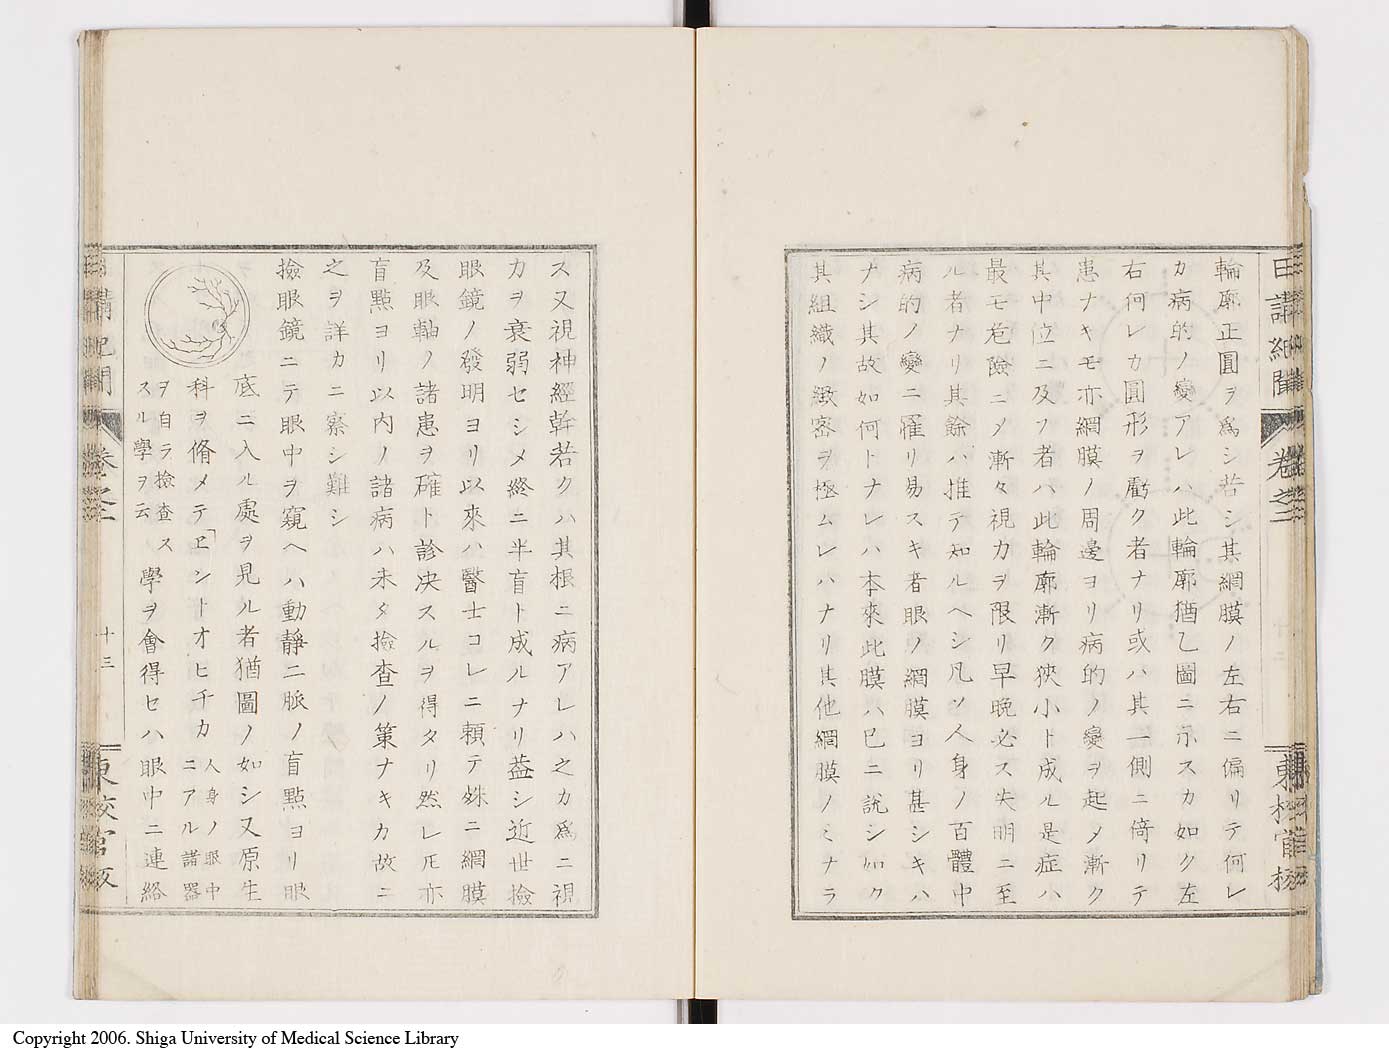 日講紀聞 卷之二
東校官板
輪廓正圓ヲ爲シ若シ其網膜ノ左右ニ偏リテ何レ
カ病的ノ變アレハ此輪廓猶乙圖ニ示スカ如ク左
右何レカ圓形ヲ虧ク者ナリ或ハ其一側ニ倚リテ
患ナキモ亦網膜ノ周邊ヨリ病的ノ變ヲ起メ漸ク
其中位ニ及フ者ハ此輪廓漸ク狹小ト成ル是症ハ
最モ危險ニメ漸々視力ヲ限リ早晩必ス失明ニ至
ル者ナリ其餘ハ推テ知ルヘシ凡ソ人身ノ百體中
病的ノ變ニ罹リ易スキ者眼ノ網膜ヨリ甚シキハ
ナシ其故如何トナレハ本來此膜ハ已ニ說シ如ク
其組織ノ緻密ヲ極ムレハナリ其他網膜ノミナラ
ス又視神經幹若クハ其根ニ病アレハ之カ爲ニ視
力ヲ衰弱セシメ終ニ半盲ト成ルナリ葢シ近世撿
眼鏡ノ發明ヨリ以來ハ醫士コレニ頼テ姝ニ網膜
及眼軸ノ諸患ヲ確ト診决スルヲ得タリ然レ𪜈亦
盲點ヨリ以内ノ諸病ハ未タ撿査ノ策ナキカ故ニ
之ヲ詳カニ察シ難シ
撿眼鏡ニテ眼中ヲ窺ヘハ動靜二脈ノ盲點ヨリ眼
底ニ入ル處ヲ見ル者猶圖ノ如シ又原生
科ヲ脩メテ「ヱントオヒチカ
人身ノ眼中
ニアル諸器
ヲ自ラ撿査ス
スル學ヲ云
學ヲ會得セハ眼中ニ連絡
日講記聞 卷之二
十三
東校官板
Copyright 2006. Shiga University of Medical Science Library